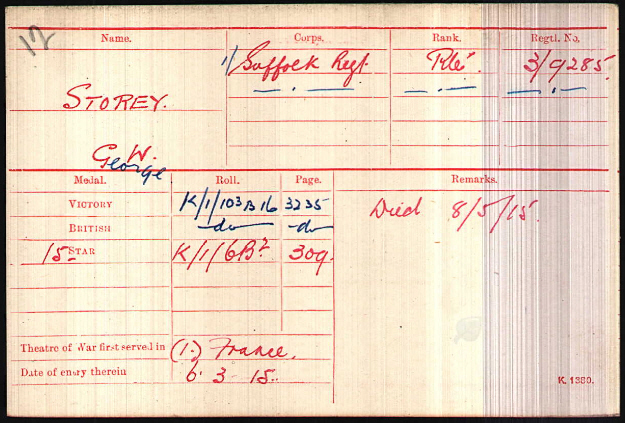 12
Name. Corps. Rank. Regtl. No.
1/ Suffolk Regt. Pte. 3/9285.
STOREY.
G. W.
George
Medal. Roll. Page. Remarks.
VICTORY K/1/103B16 3235 Died 8/5/15.
BRITISH -do- -do-
15 STAR K/1/6B2 309.
Theatre of War first served in (1.) France.
Date of entry therein 6. 3 - 15.
K. 1380.